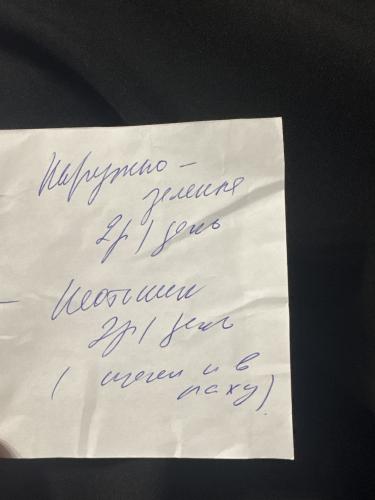 Наружно –
зеленка
2р/день
– Неотанин
2р/день
( щечки и в
паху)